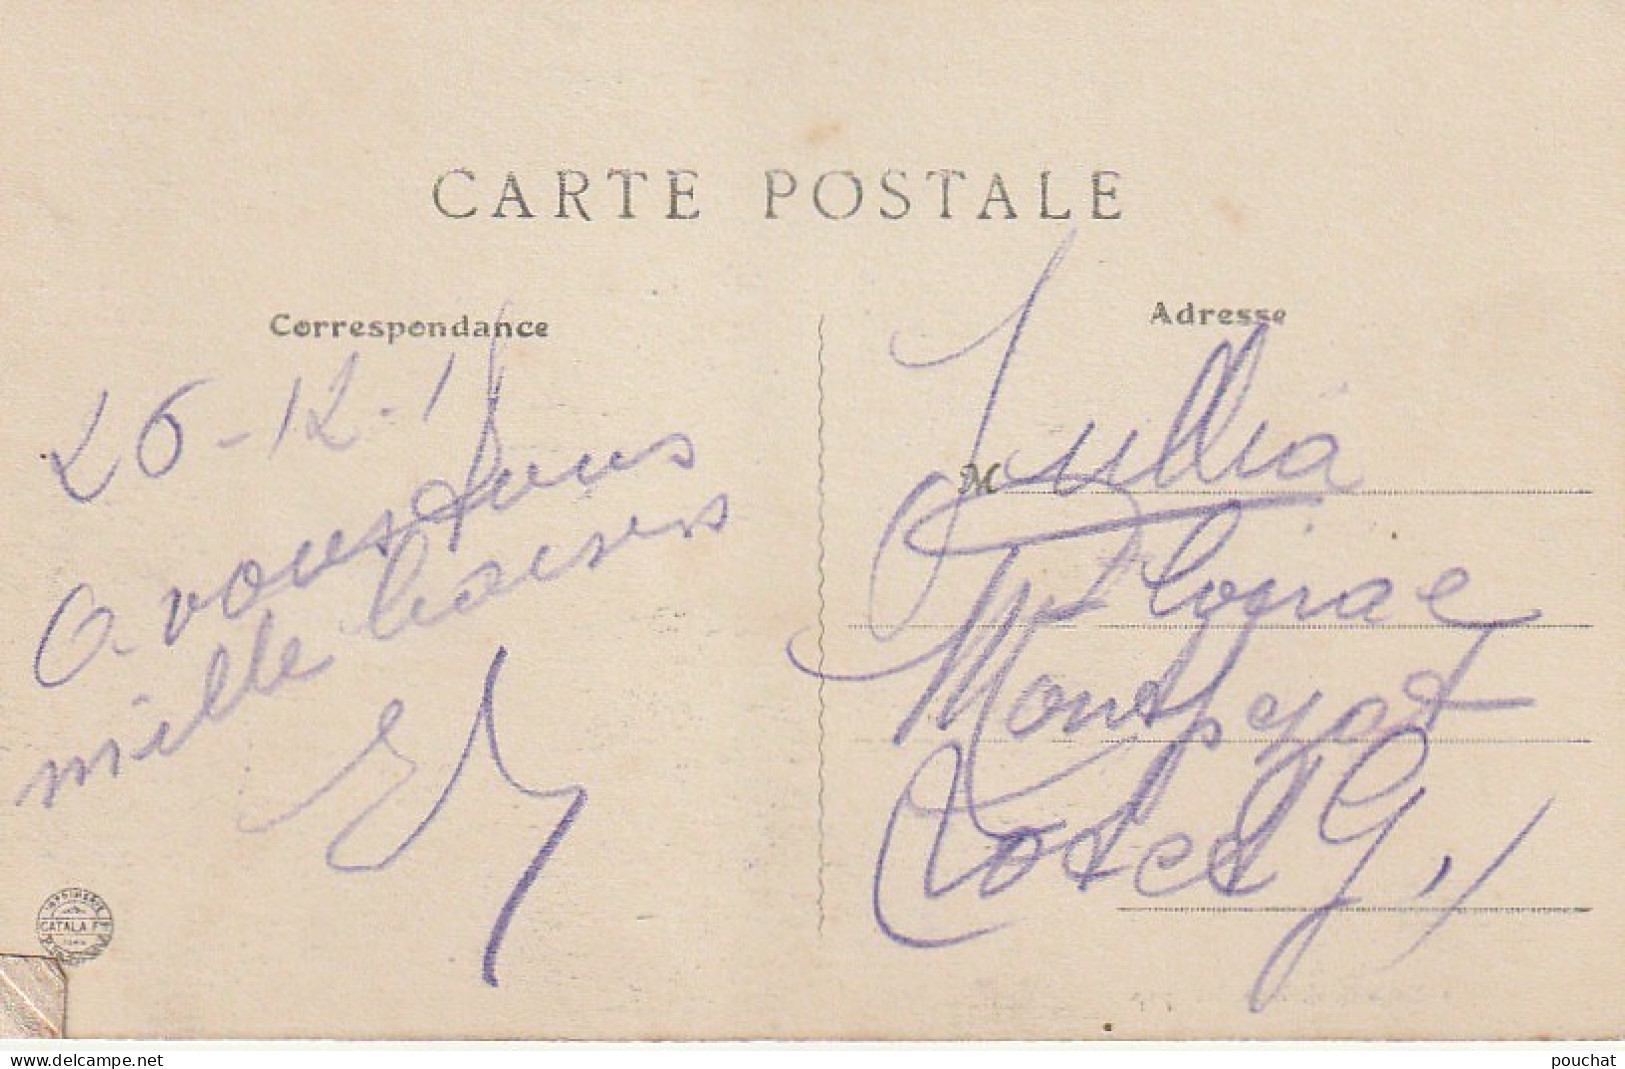 CARTE POSTALE
Correspondance
26-12-1
A vous tous
mille baisers
Adresse
M Jullia
Montpezat
Lot et G.
IMPRIMERIE
CATALA Fres
PARIS
delcampe.net
pouchat